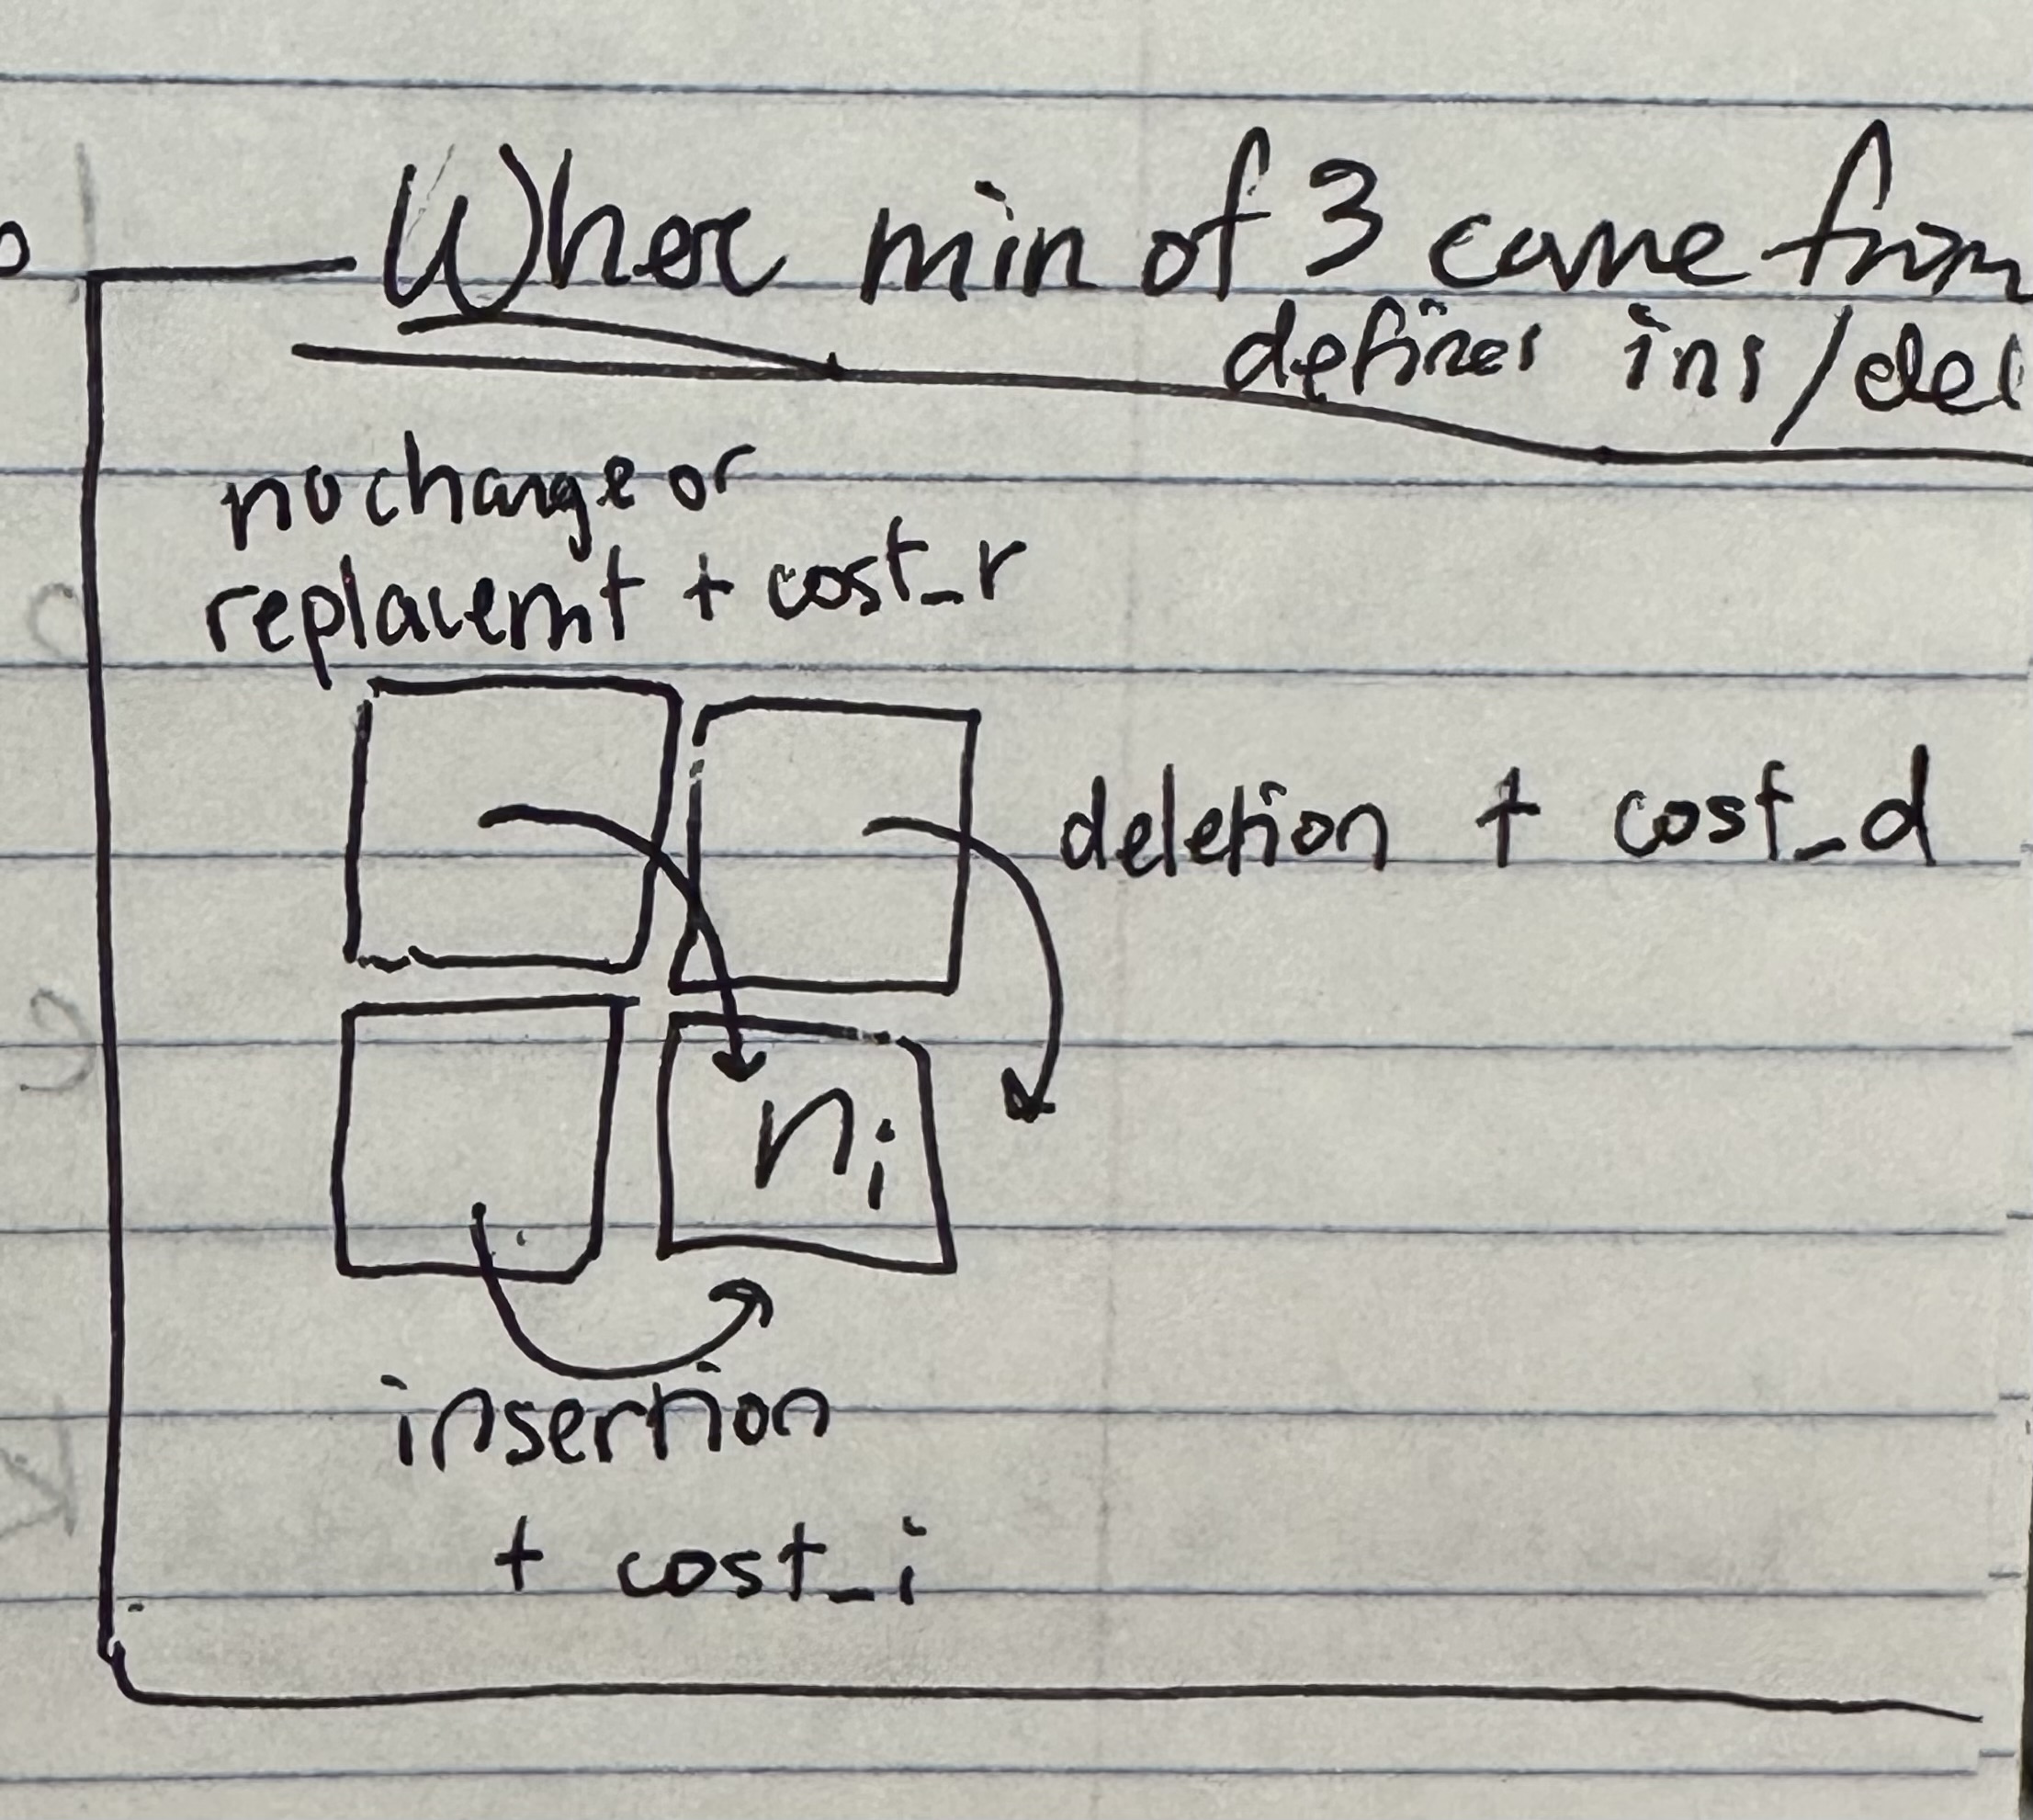 Where min of 3 came from
defines ins/del
no change or
replacemt + cost_r
deletion + cost_d
ni
insertion
+ cost_i